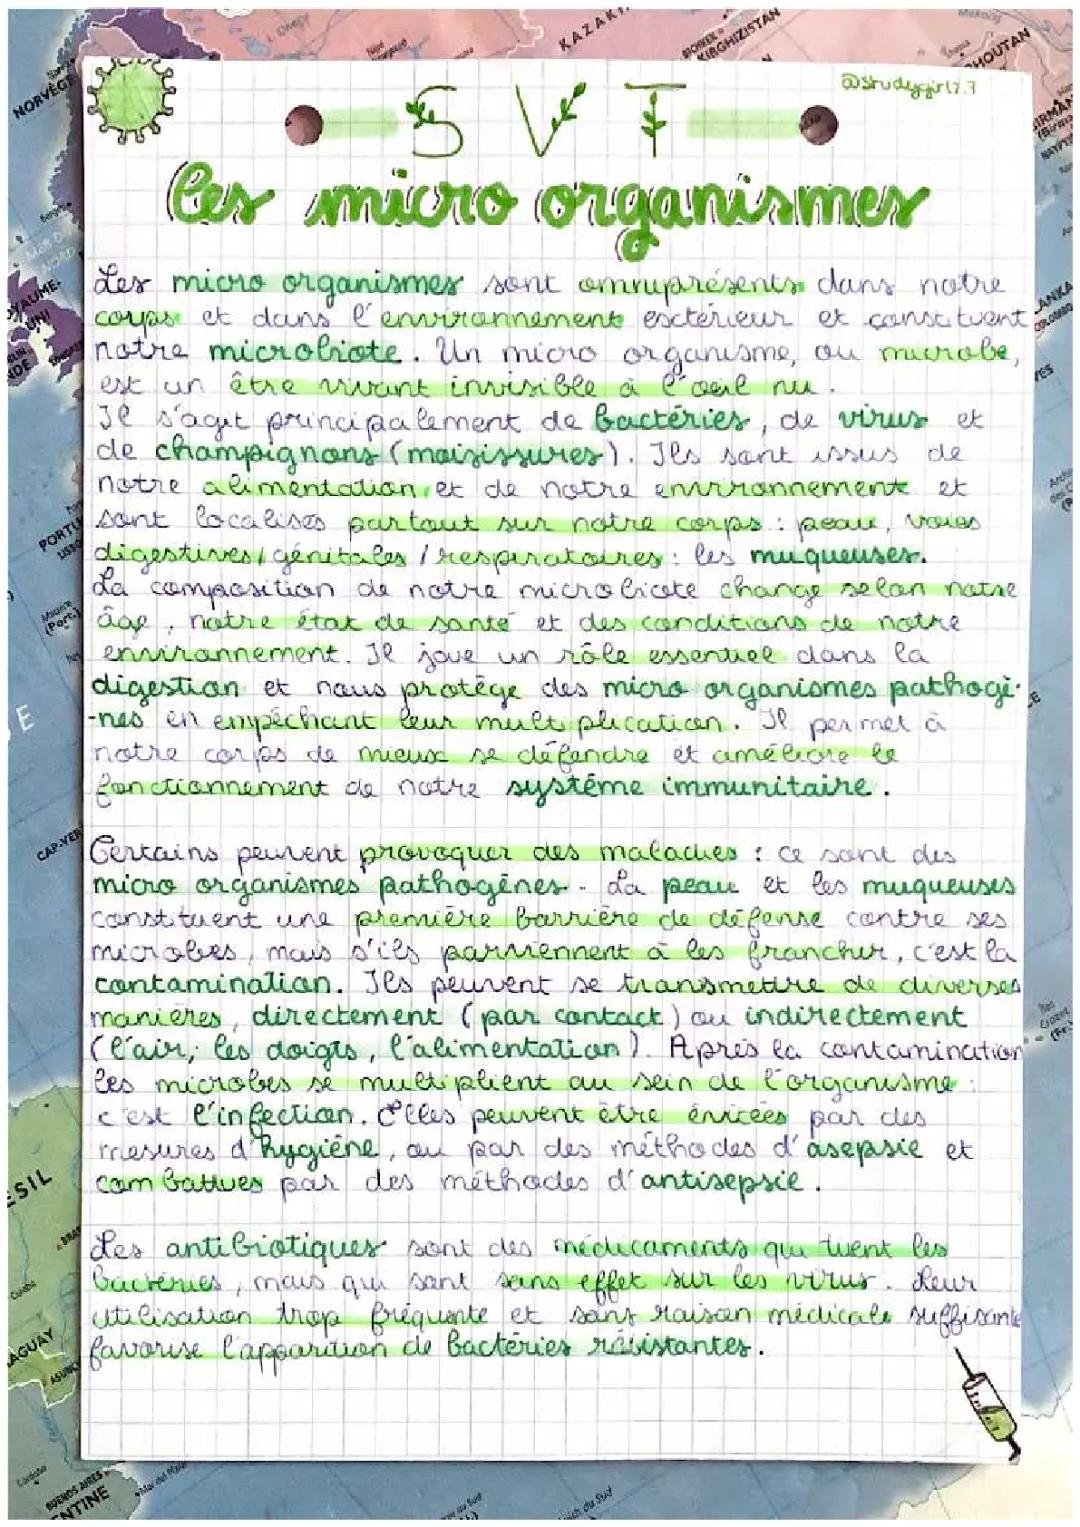 @studygirl7.7
SVT
Les micro organismes
Les micro organismes sont omniprésents dans notre
corps et dans l'environnement esctérieur et constituent
notre microbiote. Un micro organisme, ou microbe,
est un être vivant invisible à l'oeil nu.
Il s'agit principalement de bactéries, de virus et
de champignons (moisissures). Ils sont issus de
notre alimentation et de notre environnement et
sont localisés partout sur notre corps : peau, voies
digestives / génitales / respiratoires : les muqueuses.
La composition de notre microbiote change selon notre
âge, notre état de santé et des conditions de notre
environnement. Il joue un rôle essentiel dans la
digestion et nous protège des micro organismes pathogè-
-nes en empêchant leur multiplication. Il permet à
notre corps de mieux se défendre et améliore le
fonctionnement de notre système immunitaire.
Certains peuvent provoquer des maladies : ce sont des
micro organismes pathogènes. La peau et les muqueuses
constituent une première barrière de défense contre ses
microbes, mais s'ils parviennent à les franchir, c'est la
contamination. Ils peuvent se transmettre de diverses
manières, directement (par contact) ou indirectement
(l'air, les doigts, l'alimentation). Après la contamination
les microbes se multiplient au sein de l'organisme :
c'est l'infection. Elles peuvent être évitées par des
mesures d'hygiène, ou par des méthodes d'asepsie et
combattues par des méthodes d'antisepsie.
Les antibiotiques sont des médicaments qui tuent les
bactéries, mais qui sont sans effet sur les virus. Leur
utilisation trop fréquente et sans raison médicale suffisante
favorise l'apparition de bactéries résistantes.
NORVÈGE
KAZAK
KIRGHIZISTAN
BHOUTAN
BIRMAN
MER D
NORD
YAUME-
UNI
LANKA
COLOMBO
PORTU
Madère
(Port.)
CAP-VER
Crozet
(Fr.)
ÉSIL
Cuiabá
AGUAY
ASUNC
Córdoba
BUENOS AIRES
ENTINE
Mar del Plata
du Sud